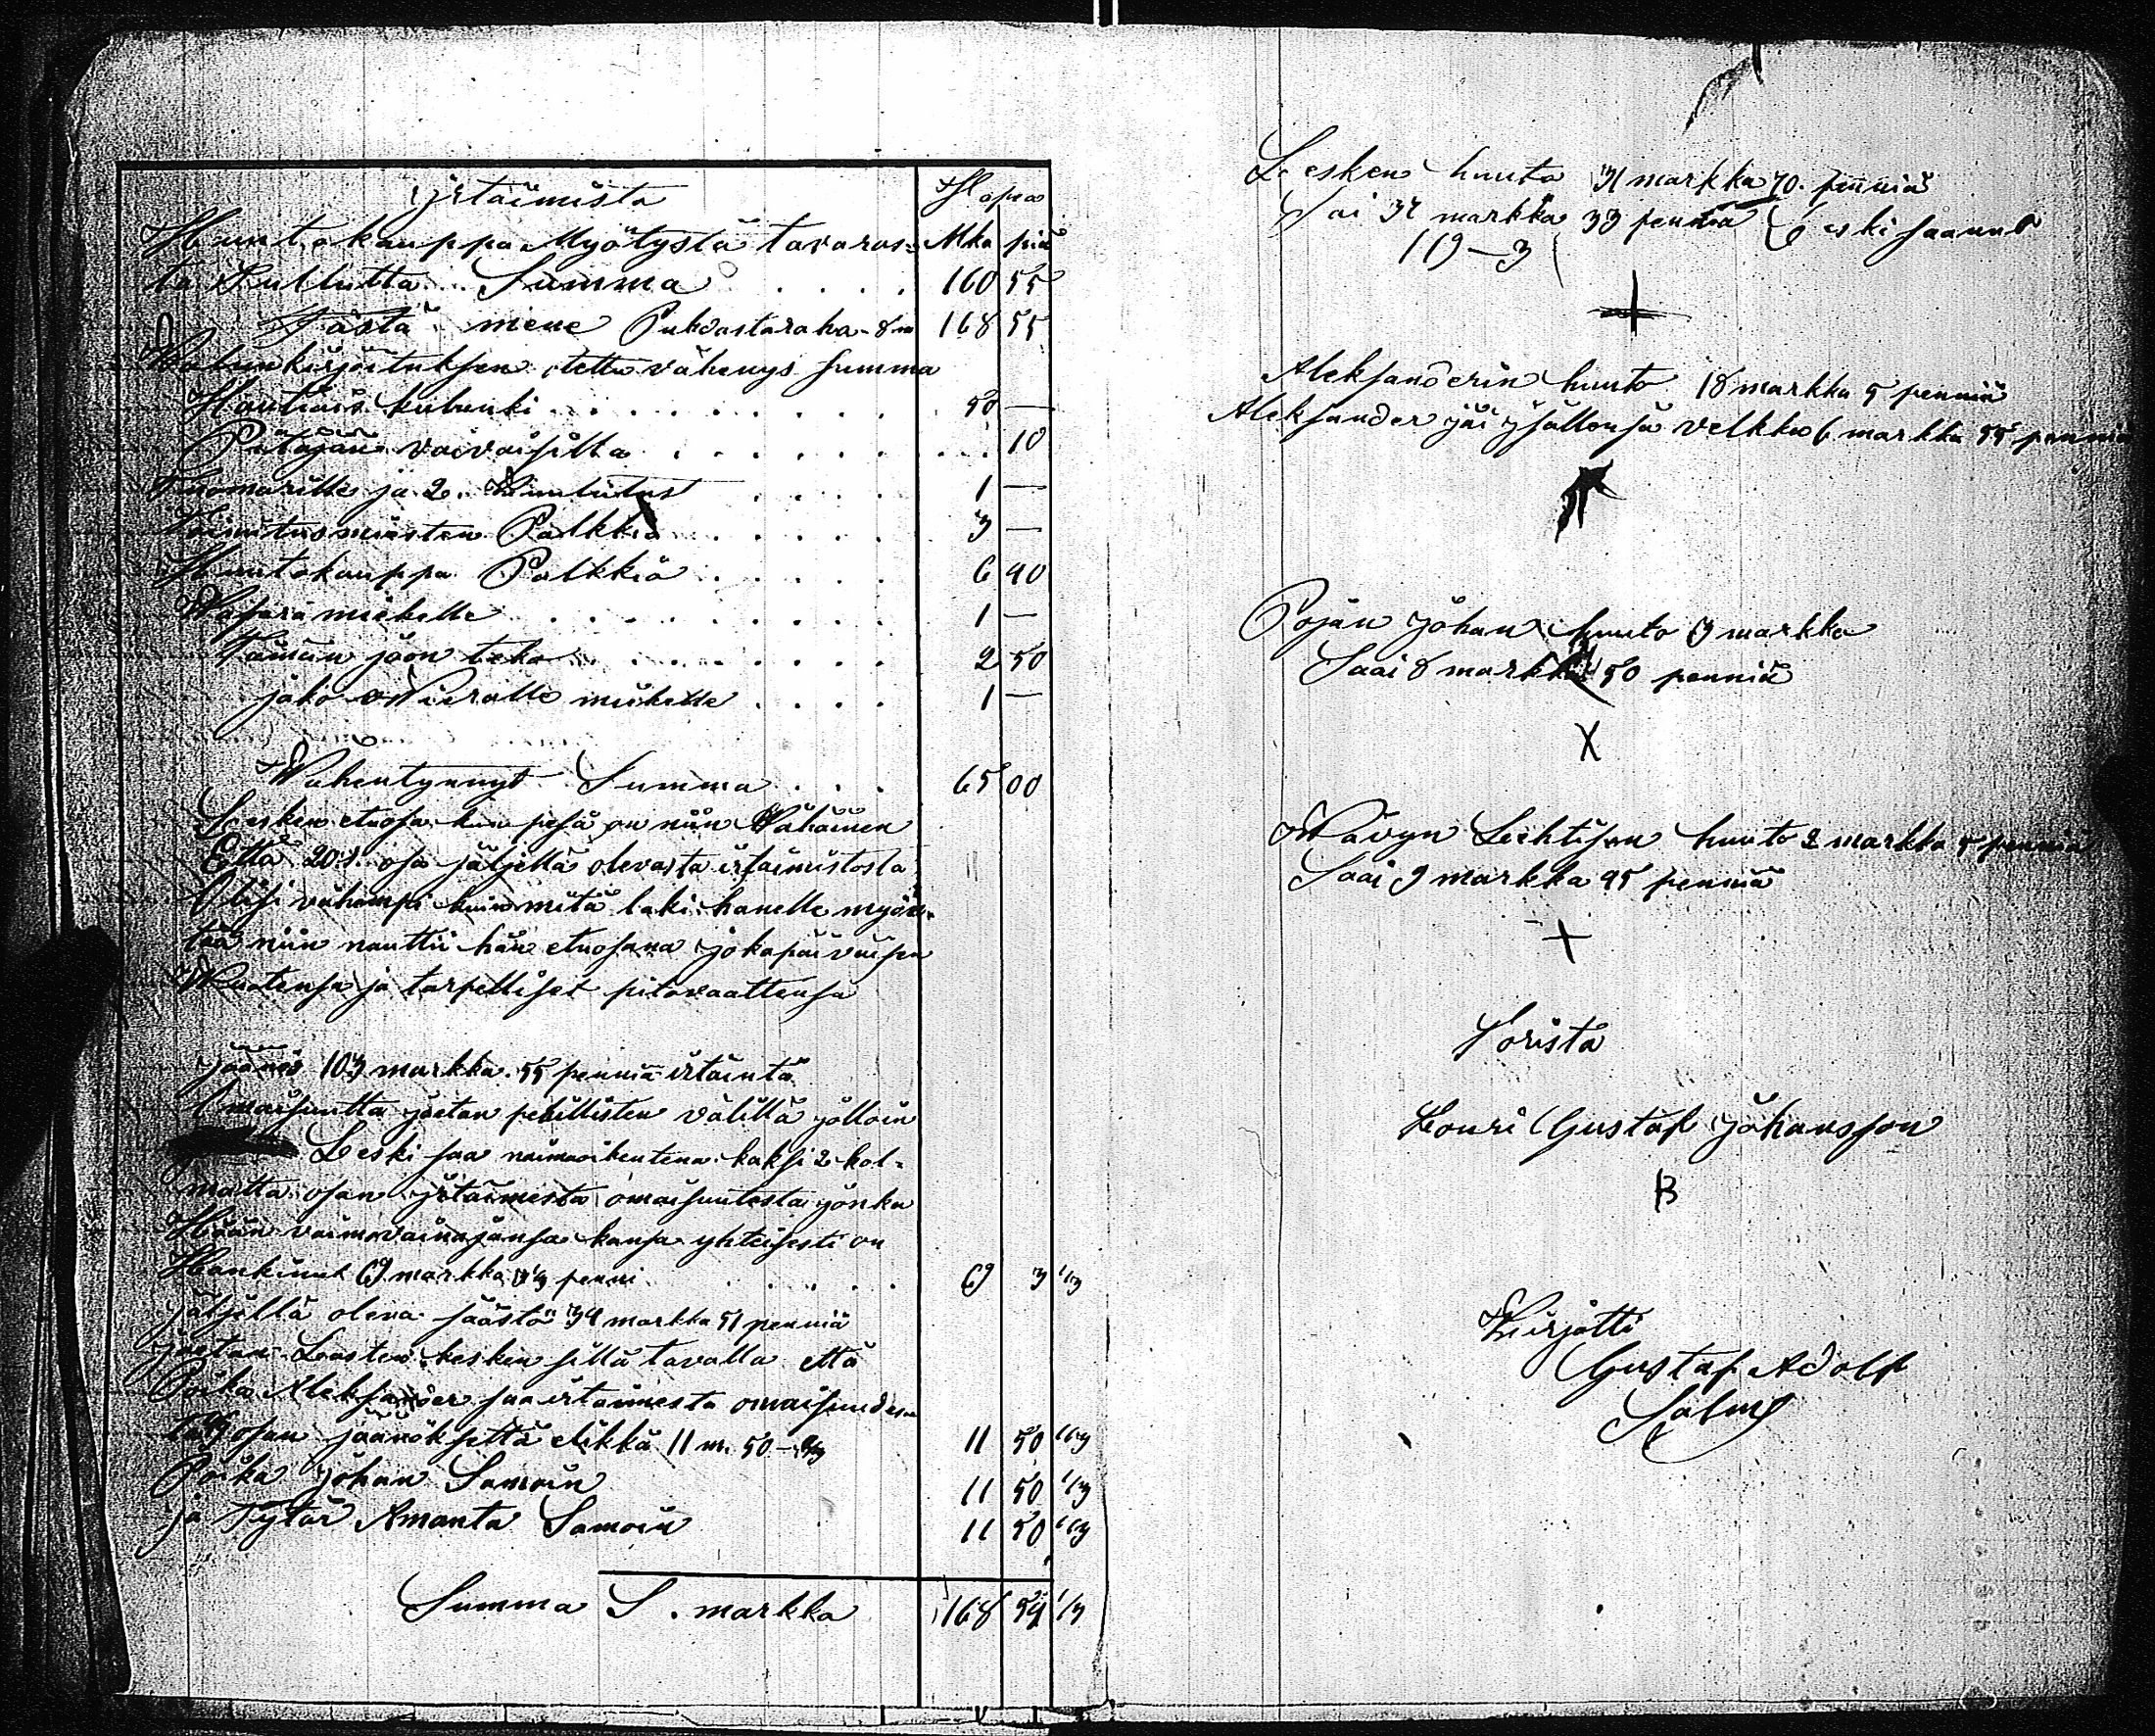 irtaimista Hopea
Huuto kauppa Myötystä tavaras= Mka piä
ta Tullutta Summa 160 55
Tästä mene Puhdastaraha 8 m 168 55
Kalunkirjoituksen otettu vähenys summa
Hautiais kulunki 50 —
Pitäjän vaivaisilla 10
Tuomarille ja 2. Kuulutus 1 —
Toimitusmiesten Palkkio 3 —
Huutokauppa Palkkiä 6 40
Wasara miehelle 1 —
Tämän jaon teko 2 50
jako Wieralle miehelle 1 —
Wähentynnyt Summa 65 00
Lesken etuosa kun pesä on niin Wähäinen
Että 20:s osa jäljellä olevasta irtaimistosta
Olisi vähempi kuin mitä laki hänelle myön=
tää niin nauttii hän etuosana jokapäiväisen
Wuotensa ja tarpelliset pitovaattensa
jäänes 103 markka 55 penniä irtainta
Omaisuutta jaetan pesillisten välillä jolloin
Leski saa naimaoikeutena kaksi 2 kol=
matta osan irtaimesta omaisuutesta jonka
Hään vaimovainajansa kansa yhteisesti on
Hankinut 69 markka 3 1/3 penni 69 3 1/3
jäljellä oleva säästö 34 markka 51 penniä
jaetan Lasten kesken sillä tavalla että
Poika Aleksander saa irtaimesta omaisuudesta
osan jäänöksettä elikkä 11 m. 50 – 1/3 11 50 1/3
Poika Johan Samoin 11 50 1/3
ja Tytär Amanta Samoin 11 50 1/3
Summa S. markka 168 54 1/3
Lesken huuto 31 markka 70. penniä
Sai 37 markka 33 penniä Leski saanut
69 – 3
Aleksanderin huuto 18 markka 5 penniä
Aleksander jäi jsällensä velkka 6 markka 55 penniä
Pojan Johan huuto 3 markka
Saai 8 markka 50 penniä
X
Wävyn Lechtisen huuto 2 markka 5 penniä
Saai 9 markka 45 penniä
Torista
Louri Gustaf Johansson
B
Kirjotti
Gustaf Adolf
Salmi